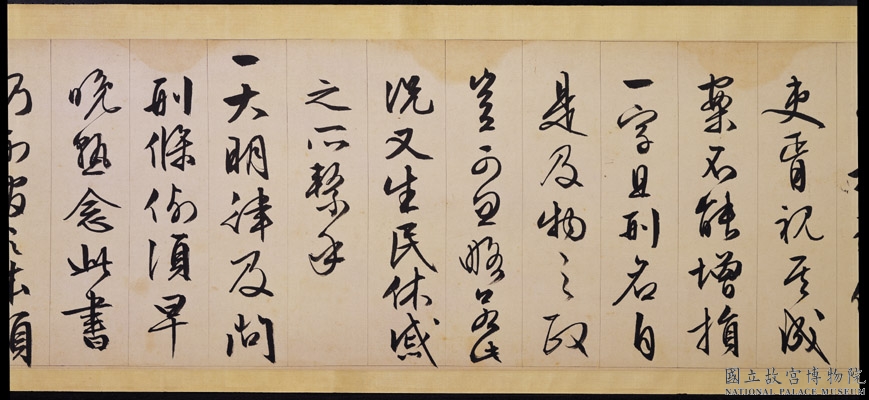 吏胥視其成
案不能增損
一字且刑名自
是及物之政
豈可忽略
況又生民休戚
之所繫乎
一大明律及問
刑條例須早
晚熟念此書
國立故宮博物院
NATIONAL PALACE MUSEUM